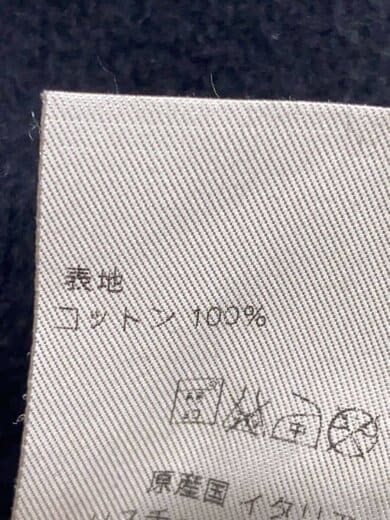 表地
コットン 100%
中
原産国 イタリア